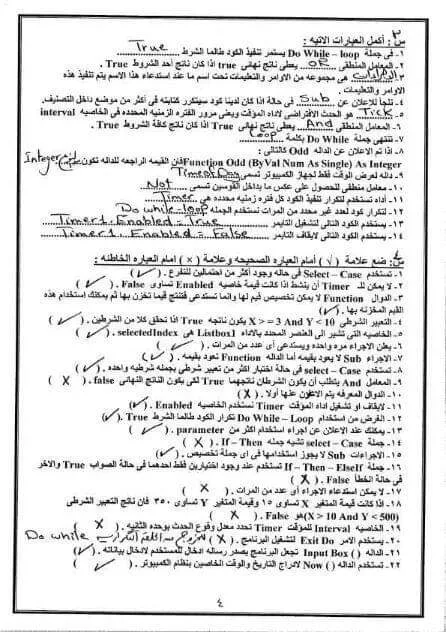 س٣ : أكمل العبارات الاتيه :
١- فى جملة Do While – loop يستمر تنفيذ الكود طالما الشرط True
٢- المعامل المنطقى OR يعطى ناتج نهائى true اذا كان ناتج أحد الشروط True .
٣- هى مجموعه من الاوامر والتعليمات تحت اسم ما عند استدعاء هذا الاسم يتم تنفيذ هذه
الاوامر والتعليمات .
٤- نلجأ للاعلان عن Sub فى حالة اذا كان لدينا كود سيتكرر كتابته فى أكثر من موضع داخل التصنيف.
٥- Tick هو الحدث الافتراضى لاداه المؤقت ويعنى مرور الفتره الزمنيه المحدده فى interval
٦- المعامل المنطقى And يعطى ناتج نهائى True اذا كان ناتج كافة الشروط True .
٧- تنتهى جملة Do While بكلمة Loop
٨- اذا تم الاعلان عن الداله Odd كالتالى :
Function Odd (ByVal Num As Single) As Integer فان القيمه الراجعه للداله تكون Integer
٩- داله لعرض الوقت فقط لجهاز الكمبيوتر تسمى TimeofDay
١٠- معامل منطقى للحصول على عكس ما بداخل القوسين تسمى Not
١١- أداه تستخدم لتكرار تنفيذ الكود كل فتره زمنيه محدده هى Timer
١٢- لتكرار كود لعدد غير محدد من المرات نستخدم الجمله Do while - loop
١٣- يستخدم الكود التالى لتشغيل التايمر Timer1.Enabled = True
١٤- يستخدم الكود التالى لايقاف التايمر Timer1.Enabled = False
س٤ : ضع علامة ( √ ) أمام العباره الصحيحه وعلامة ( × ) امام العباره الخاطئه :
١- تستخدم Select – Case فى حالة وجود أكثر من احتمالين للتفرع . ( ✓ )
٢- لا يمكن للـ Timer أن ينشط اذا كانت قيمة خاصيه Enabled تساوى False . ( ✓ )
٣- الدوال Function لا يمكن تخصيص قيم لها وانما تستدعى فتنتج قيما تخزن بها ثم يمكنك استخدام هذه
القيم المخزنه بها . ( ✓ )
٤- التعبير الشرطى X > = 3 And Y < 10 يكون ناتجه True اذا تحقق كلا من الشرطين . ( ✓ )
٥- الخاصيه التى تشير الى العنصر المحدد بالاداه Listbox1 هى selectedIndex . ( ✓ )
٦- يعلن الاجراء مره واحده ويستدعى أى عدد من المرات . ( ✓ )
٧- الاجراء Sub لا يعود بقيمه أما الداله Function تعود بقيمه . ( ✓ )
٨- تستخدم select – Case فى حالة اختبار أكثر من تعبير شرطى بجمله شرطيه واحده . ( ✓ )
٩- المعامل And يتطلب أن يكون الشرطان ناتجهما True لكى يكون الناتج النهائى false . ( X )
١٠- الدوال المعرفه يتم الاعلان عنها أولا . ( X )
١١- لايقاف أو تشغيل اداه المؤقت Timer نستخدم الخاصيه Enabled . ( ✓ )
١٢- الغرض من استخدام Do While – Loop تكرار الكود طالما الشرط True . ( ✓ )
١٣- يمكنك عند الاعلان عن اجراء استخدام أكثر من parameter . ( ✓ )
١٤- جملة select – Case تشبه جمله If – Then . ( X )
١٥- الاجراءات Sub لا يجوز استخدامها فى اى جملة تخصيص . ( ✓ )
١٦- جملة If – Then – ElseIf تستخدم عند وجود اختيارين فقط احدهما فى حالة الصواب True والاخر
فى حالة الخطأ False . ( X )
١٧- لا يمكن استدعاء الاجراء أى عدد من المرات . ( X )
١٨- اذا كانت قيمة المتغير X تساوى ١٥ وقيمة المتغير Y تساوى ٣٥٠ فان ناتج التعبير الشرطى
(X > 10 And Y < 500) هو False . ( X )
١٩- الخاصيه Interval للمؤقت Timer تحدد معدل وقوع الحدث بوحده الثانيه . ( X )
٢٠- يستخدم الامر Exit Do لتشغيل البرنامج . ( X ) Do while
٢١- الداله Input Box ( ) تجعل البرنامج يصدر رساله ادخال للمستخدم لادخال بياناته . ( ✓ )
٢٢- تستخدم الداله Now ( ) لادراج التاريخ والوقت الخاصين بنظام الكمبيوتر . ( ✓ )
٤